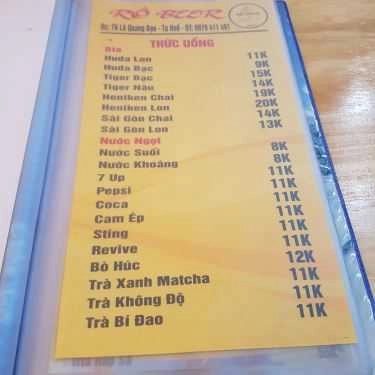 RÔ BEER
Lê Quang Đạo - Tp Huế - ĐT:
THỨC UỐNG
Bia
Huda Lon 11K
Huda Bạc 9K
Tiger Bạc 15K
Tiger Nâu 14K
Heniken Chai 19K
Heniken Lon 20K
Sài Gòn Chai 14K
Sài Gòn Lon 13K
Nước Ngọt
Nước Suối 8K
Nước Khoáng 8K
7 Up 11K
Pepsi 11K
Coca 11K
Cam Ép 11K
Sting 11K
Revive 11K
Bò Húc 12K
Trà Xanh Matcha 11K
Trà Không Độ 11K
Trà Bí Đao 11K